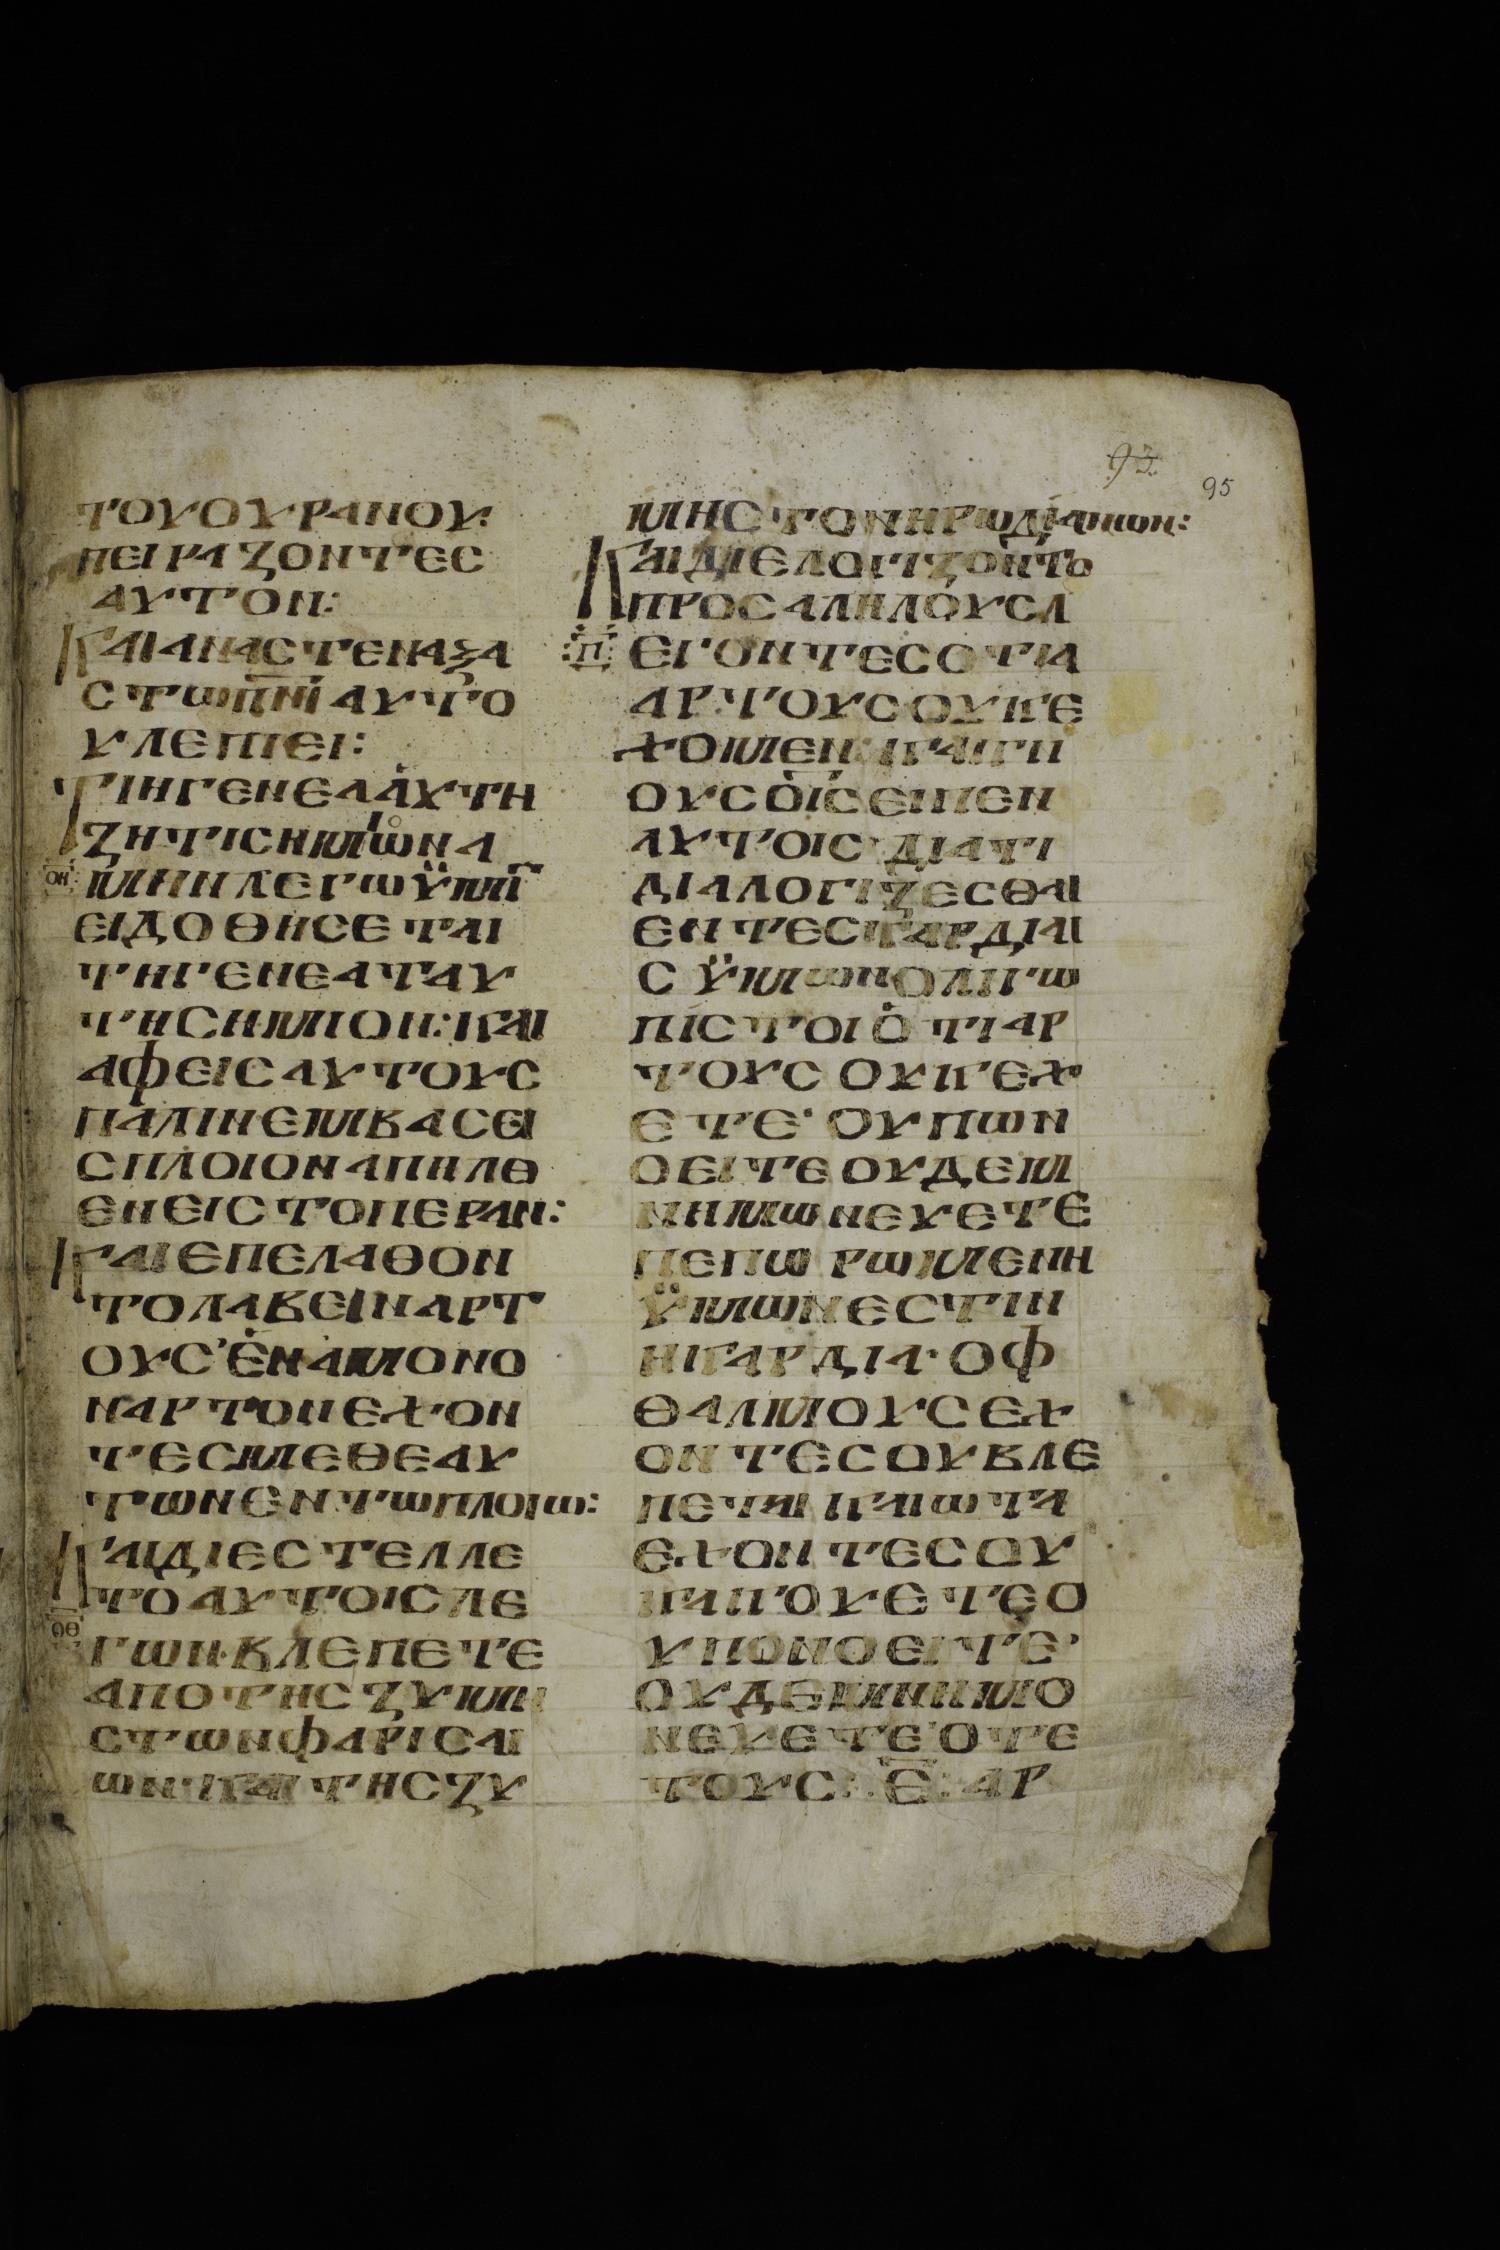 93
95
ΤΟΥΟΥΡΑΝΟΥ·
ΠΕΙΡΑΖΟΝΤΕС
ΑΥΤΟΝ:
ΚΑΙΑΝΑСΤΕΝΑΞΑ
СΤωΠΝΙΑΥΤΟ
ΥΛΕΓΙΕΙ:
ΤΙΗΓΕΝΕΑΑΥΤΗ
ΖΗΤΙСΗΜΙΟωΝΑ
ΟΗ ΜΗΝΛΕΓωΫΜΙ
ΕΙΔΟΘΗСΕΤΑΙ
ΤΗΓΕΝΕΑΤΑΥ
ΤΗСΗΜΙΟΝ:ΚΑΙ
ΑΦΕΙСΑΥΤΟΥС
ΠΑΛΙΝΕΜΒΑСΕΙ
СΠΛΟΙΟΝΑΠΗΛΘ
ΕΝΕΙСΤΟΠΕΡΑΝ:
ΚΑΙΕΠΕΛΑΘΟΝ
ΤΟΛΑΒΕΙΝΑΡΤ
ΟΥСΈΝΑΜΟΝΟ
ΝΑΡΤΟΝΕΧΟΝ
ΤΕСΜΕΘΕΑΥ
ΤωΝΕΝΤωΠΛΟΙω:
ΚΑΙΔΙΕСΤΕΛΛΕ
ΤΟΑΥΤΟΙСΛΕ
ΟΘ ΓωΝ·ΒΛΕΠΕΤΕ
ΑΠΟΤΗСΖΥΜΗ
СΤωΝΦΑΡΙСΑΙ
ωΝ·ΚΑΙΤΗСΖΥ
ΜΗСΤΟΝΗΡωΔΙΑΝωΝ:
ΚΑΙΔΙΕΛΟΓΙΖΟΝΤΟ
ΠΡΟСΑΛΗΛΟΥСΛ
Π ΕΓΟΝΤΕСΟΤΙΑ
ΑΡΤΟΥСΟΥΚΕ
ΧΟΜΕΝ:ΚΑΙΓΝ
ΟΥСΟΙСΕΙΠΕΝ
ΑΥΤΟΙС·ΔΙΑΤΙ
ΔΙΑΛΟΓΙΖΕСΘΑΙ
ΕΝΤΕСΚΑΡΔΙΑΙ
СΫΜωΝΟΛΙΓω
ΠΙСΤΟΙΟΤΙΑΡ
ΤΟΥСΟΥΚΕΧ
ΕΤΕ·ΟΥΠωΝ
ΟΕΙΤΕΟΥΔΕΜ
ΝΗΜωΝΕΥΕΤΕ
ΠΕΠωΡωΜΕΝΗ
ΫΜωΝΕСΤΙΝ
ΗΚΑΡΔΙΑ·ΟΦ
ΘΑΛΜΟΥСΕΧ
ΟΝΤΕСΟΥΒΛΕ
ΠΕΤΑΙΚΑΙωΤΑ
ΕΧΟΝΤΕСΟΥ
ΚΑΚΟΥΕΤΕΟ
ΥΠΟΝΟΕΙΤΕ·
ΟΥΔΕΜΝΗΜΟ
ΝΕΥΕΤΕΌΤΕ
ΤΟΥС:Ε:ΑΡ